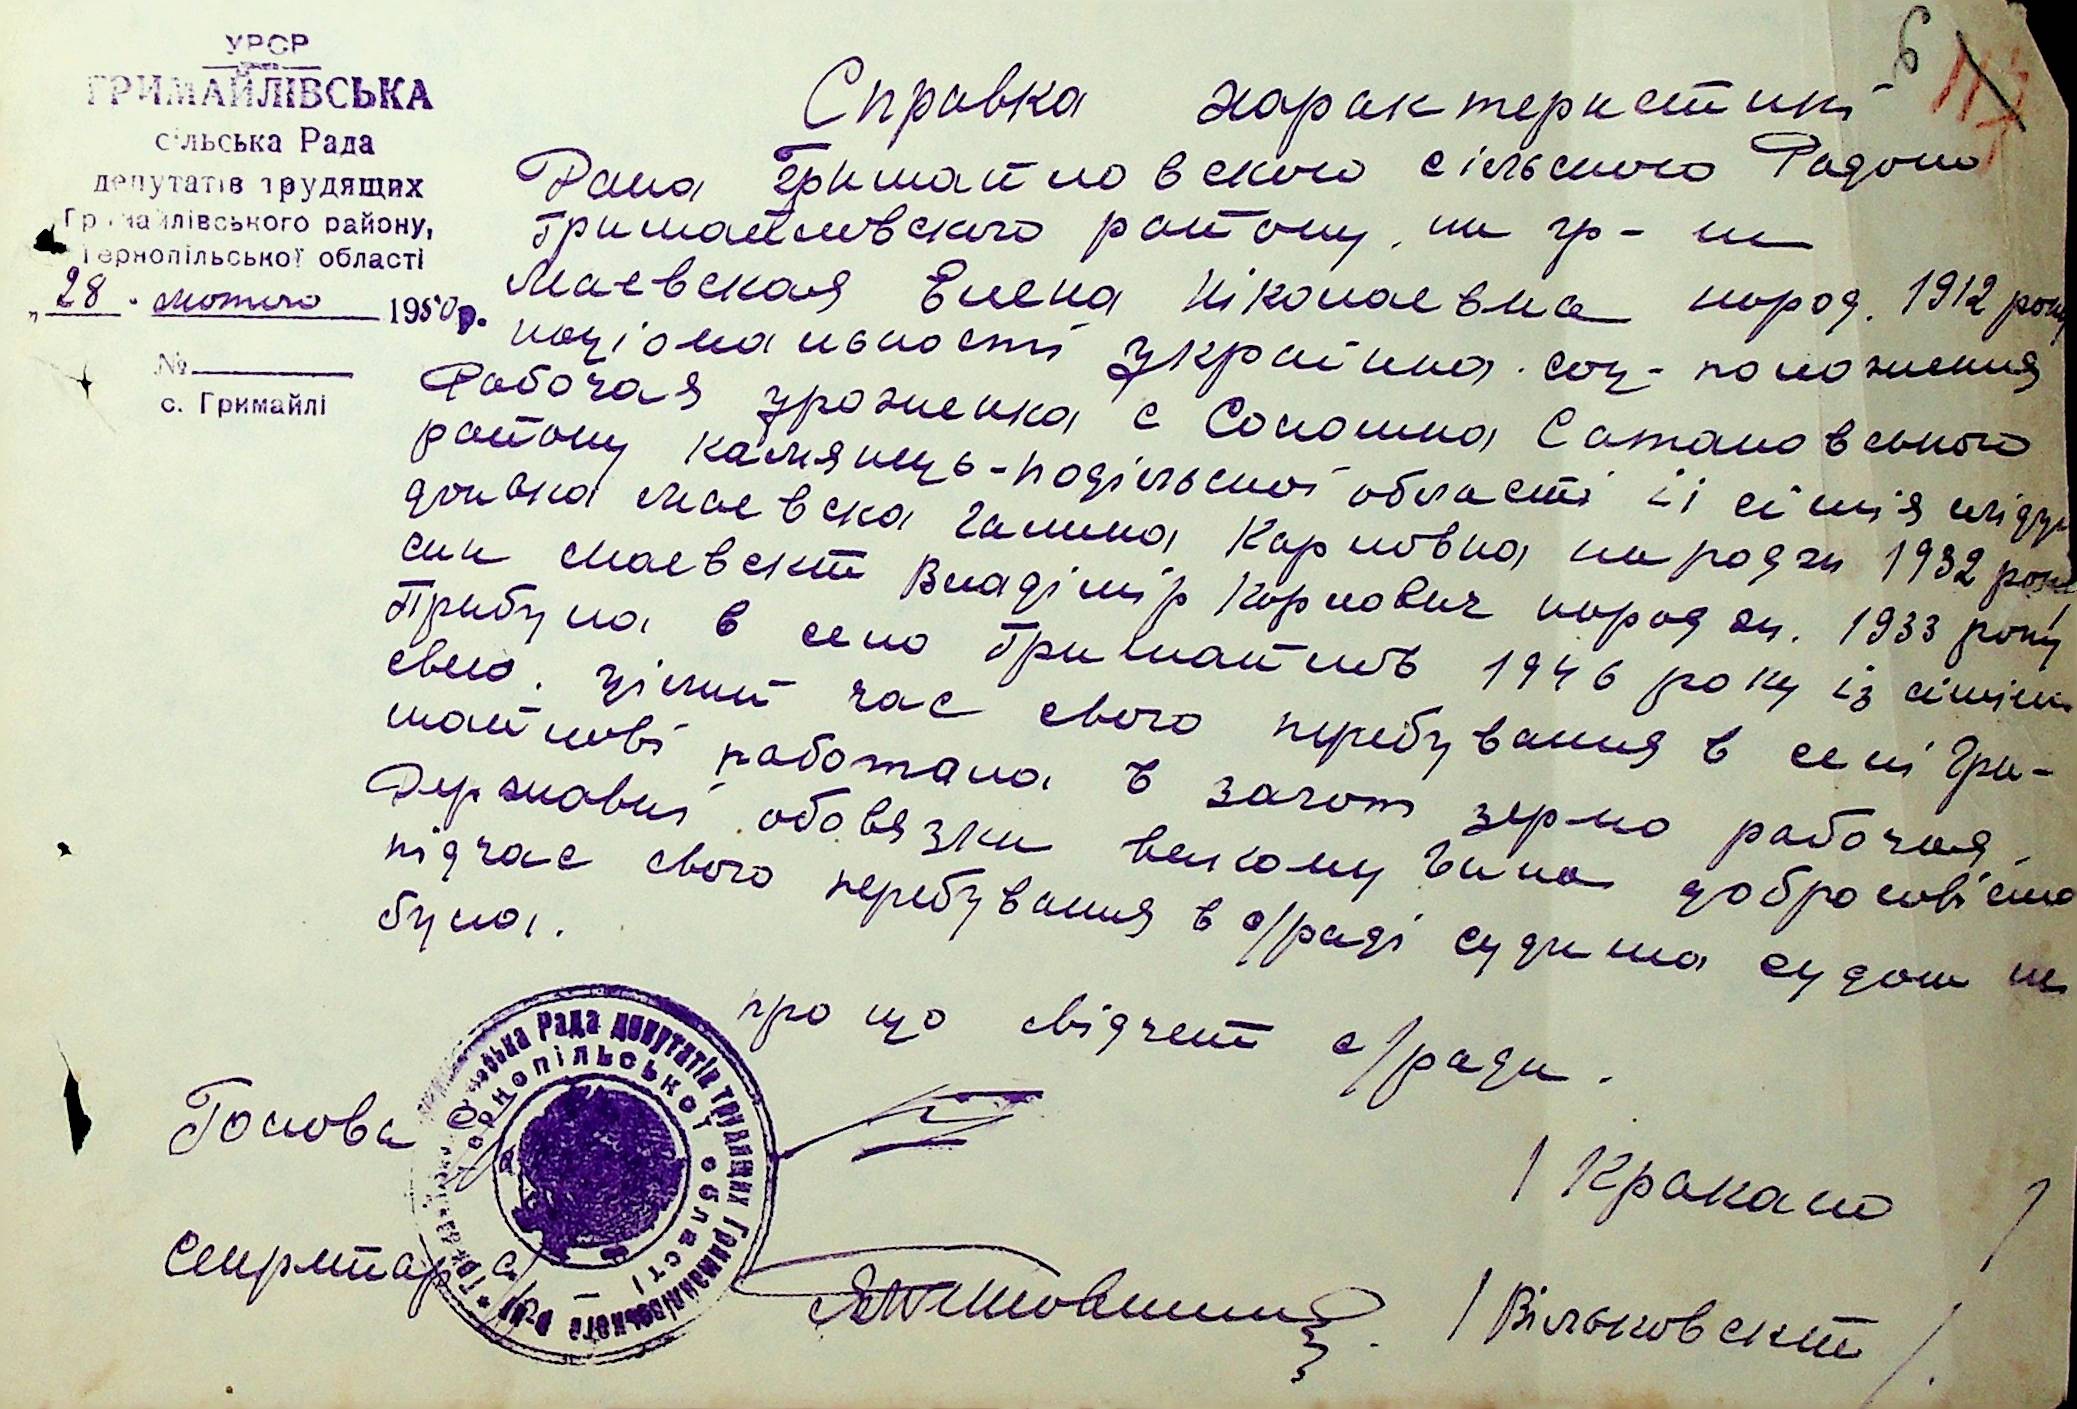 УРСР
ГРИМАЙЛІВСЬКА
сільська Рада
депутатів трудящих
Гримайлівського району,
Тернопільської області
„28" лютого 1950р.
№
с. Гримайлі
6
117
Справка характеристикі
Дана Гримайловскою сільською Радою
Гримайловского району, на гр-н
Маевская Елена Ніколаевна народ. 1912 року
національності Українка. соц-положения
Рабочая урожненка с Соломна Сатановського
району Камянець-Подільської області її сімія слідую
дочька Маевска Галина Карповна народжн 1932 року
син Маевский Владімір Карпович народжн. 1933 року
Прибула в село Гримайлов 1946 року із сімією
свею. Цілий час свого перебування в селі Гри-
майлові работала в загот зерно рабочая.
Державні обовязки виконувала добросовісно
підчас свого перебування в с/раді судима судом не
була.
про що свідчит с/рада.
Голова
/ Кракало /
Секритарь с/р
/ Вільковский /
Гримайлівська сільська Рада депутатів трудящих Гримайлівського р-ну
Тернопільської області